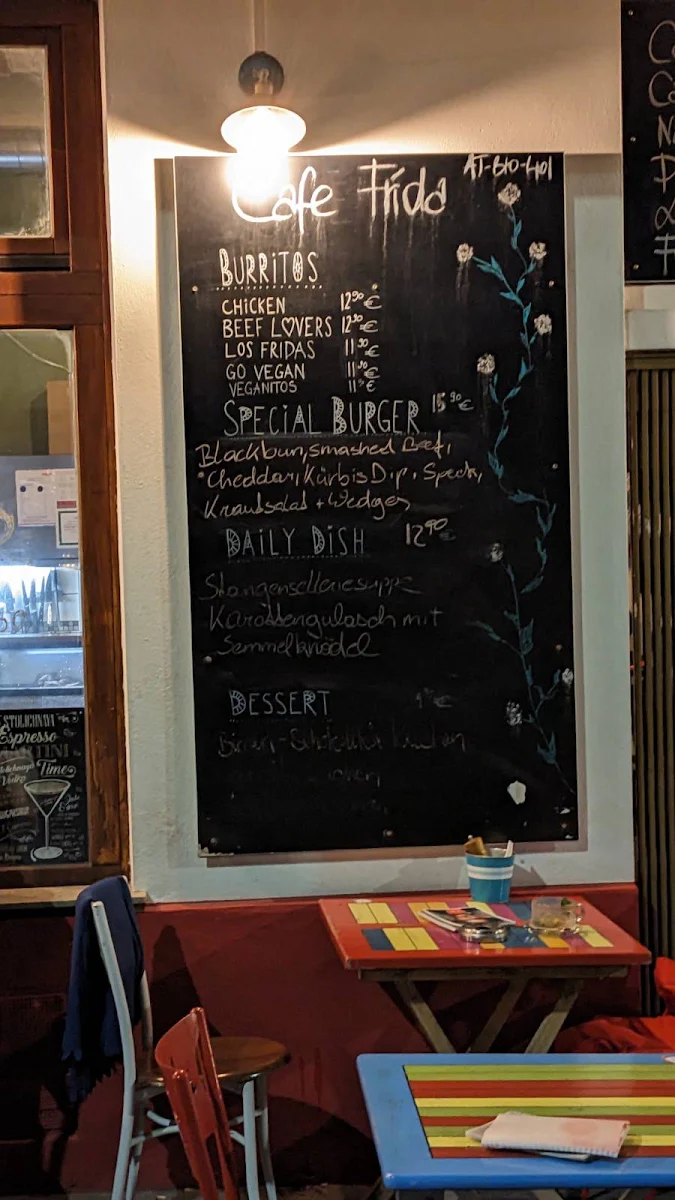 Cafe Frida
AT-BIO-401
BURRITOS
CHICKEN 12⁹⁰ €
BEEF LOVERS 12⁹⁰ €
LOS FRIDAS 11⁹⁰ €
GO VEGAN 11⁹⁰ €
VEGANITOS 11⁹⁰ €
SPECIAL BURGER 15⁹⁰ €
Blackbun, smashed Beef,
Cheddar, Kürbis Dip, Speck,
Krautsalat + Wedges
DAILY DISH 12⁹⁰ €
Stangenselleriesuppe
Karottengulasch mit
Semmelknödel
DESSERT €
STOLICHNAYA
Espresso
MARTINI
Time